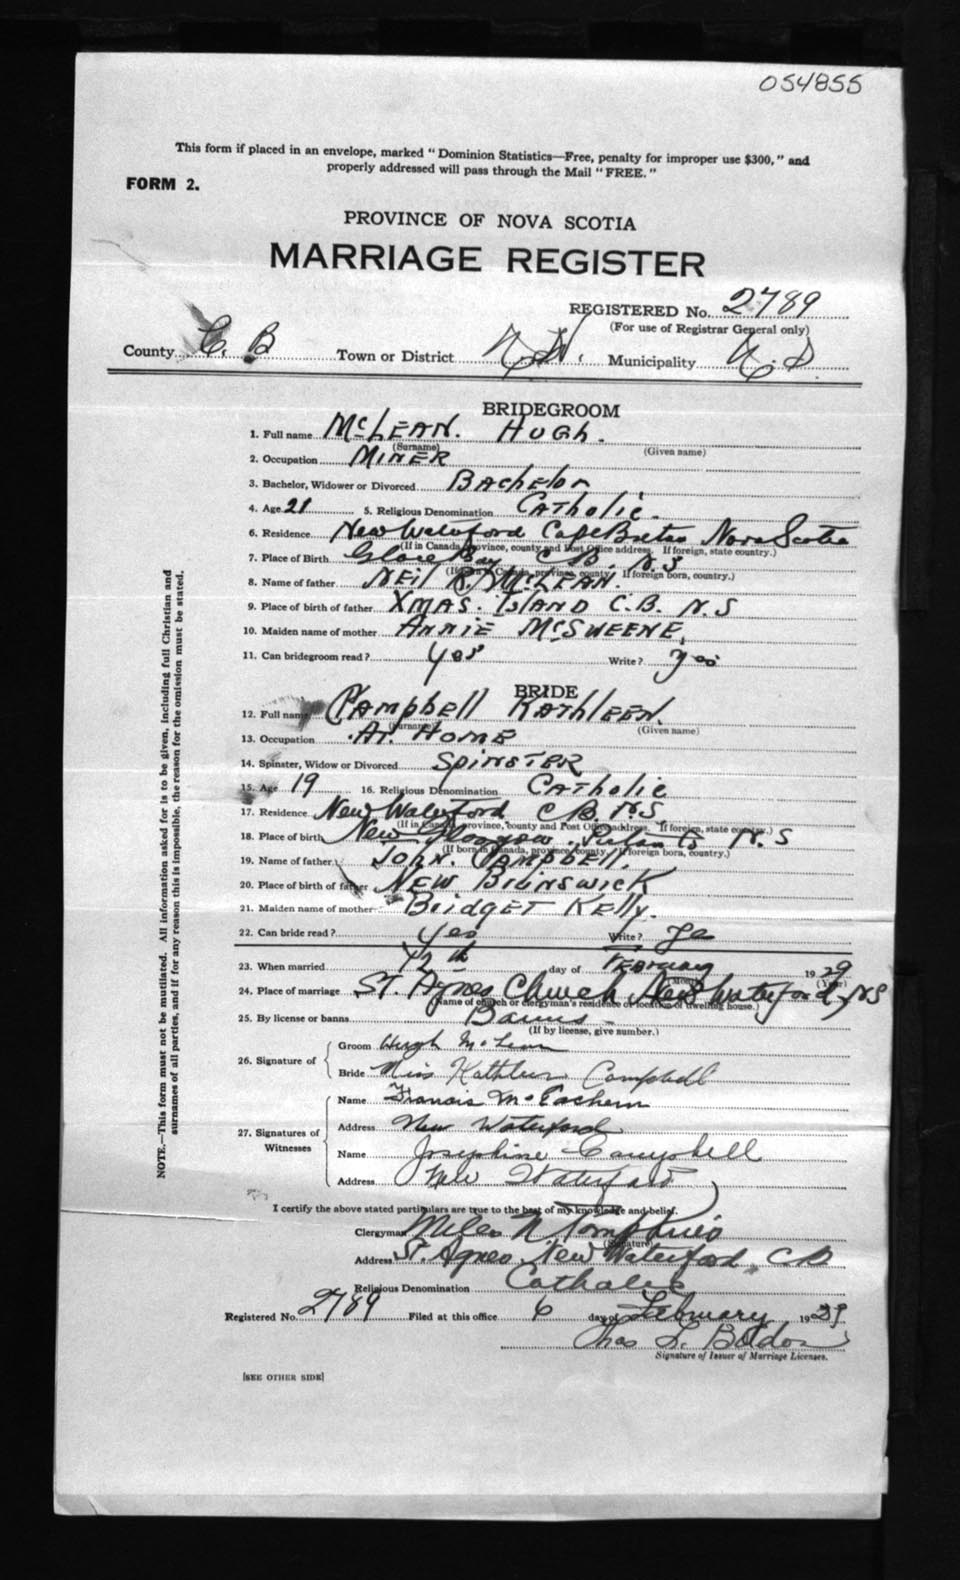 054855
This form if placed in an envelope, marked "Dominion Statistics—Free, penalty for improper use $300," and
properly addressed will pass through the Mail "FREE."
FORM 2.
PROVINCE OF NOVA SCOTIA
MARRIAGE REGISTER
REGISTERED No. 2789
(For use of Registrar General only)
County C. B Town or District N.W. Municipality
BRIDEGROOM
1. Full name McLEAN. HUGH.
(Surname) (Given name)
2. Occupation MINER
3. Bachelor, Widower or Divorced Bachelor
4. Age 21 5. Religious Denomination Catholic.
6. Residence New Waterford Cape Breton Nova Scotia
(If in Canada, province, county and Post Office address. If foreign, state country.)
7. Place of Birth Glace Bay C. B. N.S
(If born in Canada, province, county. If foreign born, country.)
8. Name of father NEIL R. McLEAN.
9. Place of birth of father XMAS. ISLAND C.B. N.S
10. Maiden name of mother ANNIE McSWEENE.
11. Can bridegroom read? yes Write? yes
BRIDE
12. Full name Campbell KATHLEEN.
(Surname) (Given name)
13. Occupation At. HOME
14. Spinster, Widow or Divorced SPINSTER
15. Age 19 16. Religious Denomination Catholic
17. Residence New Waterford C.B. N.S
(If in Canada, province, county and Post Office address. If foreign, state country.)
18. Place of birth New Glasgow N.S
(If born in Canada, province, county. If foreign born, country.)
19. Name of father JOHN. CAMPBELL.
20. Place of birth of father NEW BRUNSWICK
21. Maiden name of mother BridgET Kelly.
22. Can bride read? yes Write?
23. When married day of FEBRUARY 1929
(Month) (Year)
24. Place of marriage ST. Agnes Church New Waterford, NS
(Name of church or clergyman's residence or location of dwelling house.)
25. By license or banns Banns
(If by license, give number.)
26. Signature of
Groom Hugh McLean
Bride Miss Kathleen Campbell
27. Signatures of Witnesses
Name Francis McEachern
Address New Waterford
Name Josephine Campbell
Address New Waterford
I certify the above stated particulars are true to the best of my knowledge and belief.
Clergyman Miles N Tompkins
(Signature)
Address St. Agnes, New Waterford, C B
Religious Denomination Catholic
Registered No. 2789 Filed at this office 6 day of February 1929
Signature of Issuer of Marriage Licenses.
[SEE OTHER SIDE]
NOTE.—This form must not be mutilated. All information asked for is to be given, including full Christian and
surnames of all parties, and if for any reason this is impossible, the reason for the omission must be stated.